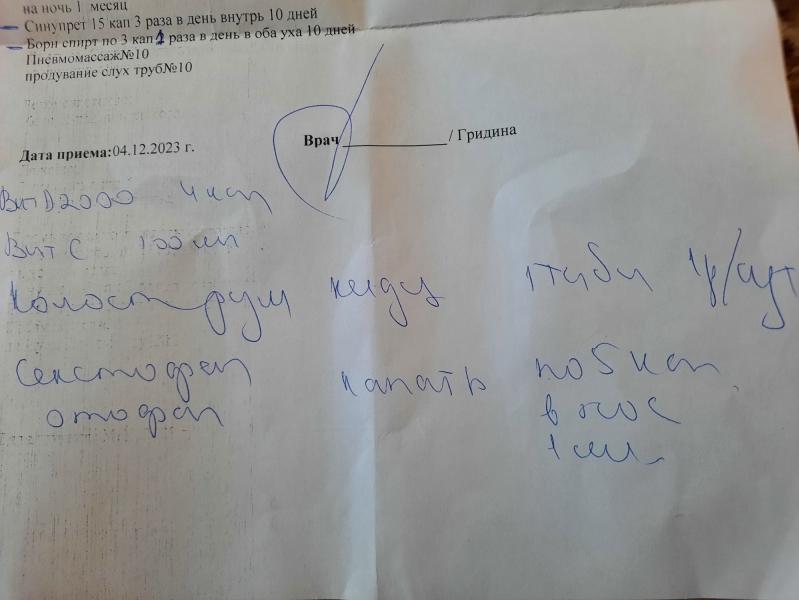 на ночь 1 месяц
Синупрет 15 кап 3 раза в день внутрь 10 дней
Борн спирт по 3 кап 2 раза в день в оба уха 10 дней
Пневмомассаж№10
продувание слух труб№10
Дата приема:04.12.2023 г.
Врач __________ / Гридина
Вит D2000 4 кап
Вит С 100 мл
Колострум 1 таби 1р/сут
капать по 5 кап
отофан в нос